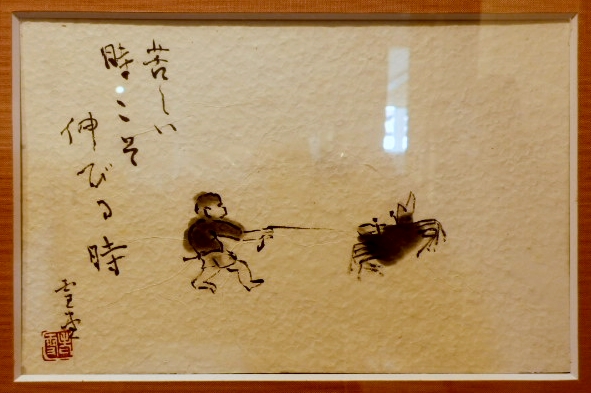 苦しい
時こそ
伸びる時